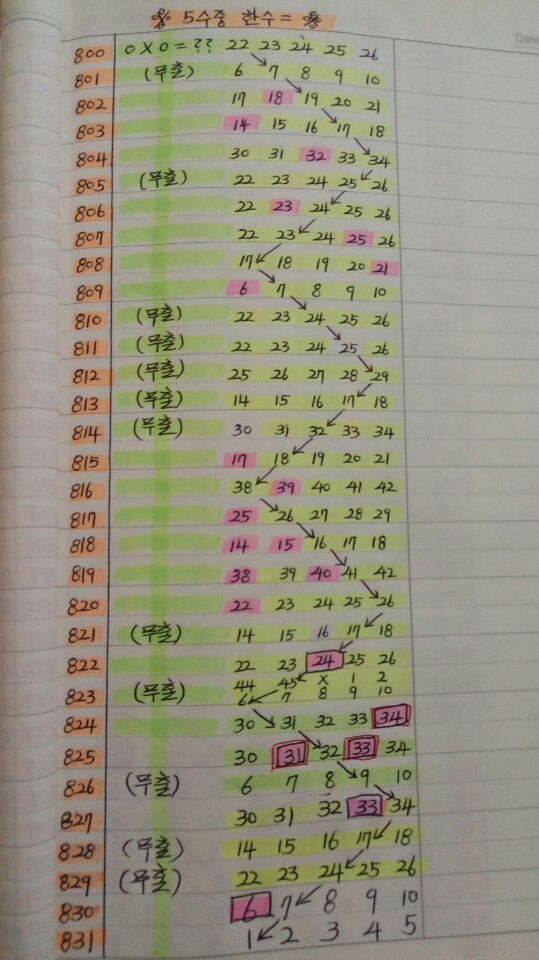 ※ 5수중 한수 = ※
Date
800 0 X 0 = ?? 22 23 24 25 26
801 (무출) 6 7 8 9 10
802 17 18 19 20 21
803 14 15 16 17 18
804 30 31 32 33 34
805 (무출) 22 23 24 25 26
806 22 23 24 25 26
807 22 23 24 25 26
808 17 18 19 20 21
809 6 7 8 9 10
810 (무출) 22 23 24 25 26
811 (무출) 22 23 24 25 26
812 (무출) 25 26 27 28 29
813 (무출) 14 15 16 17 18
814 (무출) 30 31 32 33 34
815 17 18 19 20 21
816 38 39 40 41 42
817 25 26 27 28 29
818 14 15 16 17 18
819 38 39 40 41 42
820 22 23 24 25 26
821 (무출) 14 15 16 17 18
822 22 23 24 25 26
44 45 X 1 2
823 (무출) 6 7 8 9 10
824 30 31 32 33 34
825 30 31 32 33 34
826 (무출) 6 7 8 9 10
827 30 31 32 33 34
828 (무출) 14 15 16 17 18
829 (무출) 22 23 24 25 26
830 6 7 8 9 10
831 1 2 3 4 5